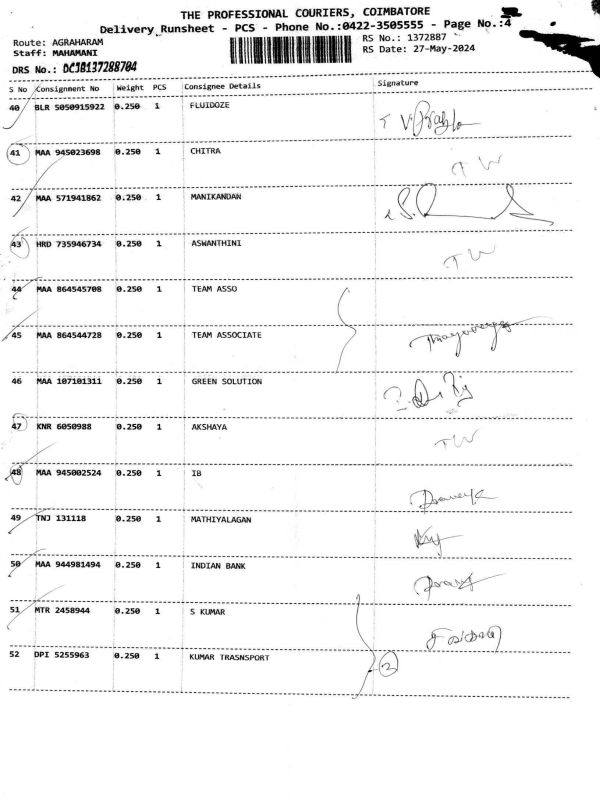 THE PROFESSIONAL COURIERS, COIMBATORE
Delivery Runsheet - PCS - Phone No.:0422-3505555 - Page No.:4
Route: AGRAHARAM
RS No.: 1372887
Staff: MAHAMANI
RS Date: 27-May-2024
DRS No.: DCJB137288704
S No Consignment No Weight PCS Consignee Details Signature
40 BLR 5050915922 0.250 1 FLUIDOZE
41 MAA 945023698 0.250 1 CHITRA TW
42 MAA 571941862 0.250 1 MANIKANDAN
43 HRD 735946734 0.250 1 ASWANTHINI TW
44 MAA 864545708 0.250 1 TEAM ASSO
45 MAA 864544728 0.250 1 TEAM ASSOCIATE
46 MAA 107101311 0.250 1 GREEN SOLUTION
47 KNR 6050988 0.250 1 AKSHAYA TW
48 MAA 945002524 0.250 1 IB
49 TNJ 131118 0.250 1 MATHIYALAGAN
50 MAA 944981494 0.250 1 INDIAN BANK
51 MTR 2458944 0.250 1 S KUMAR
52 DPI 5255963 0.250 1 KUMAR TRASNSPORT 2